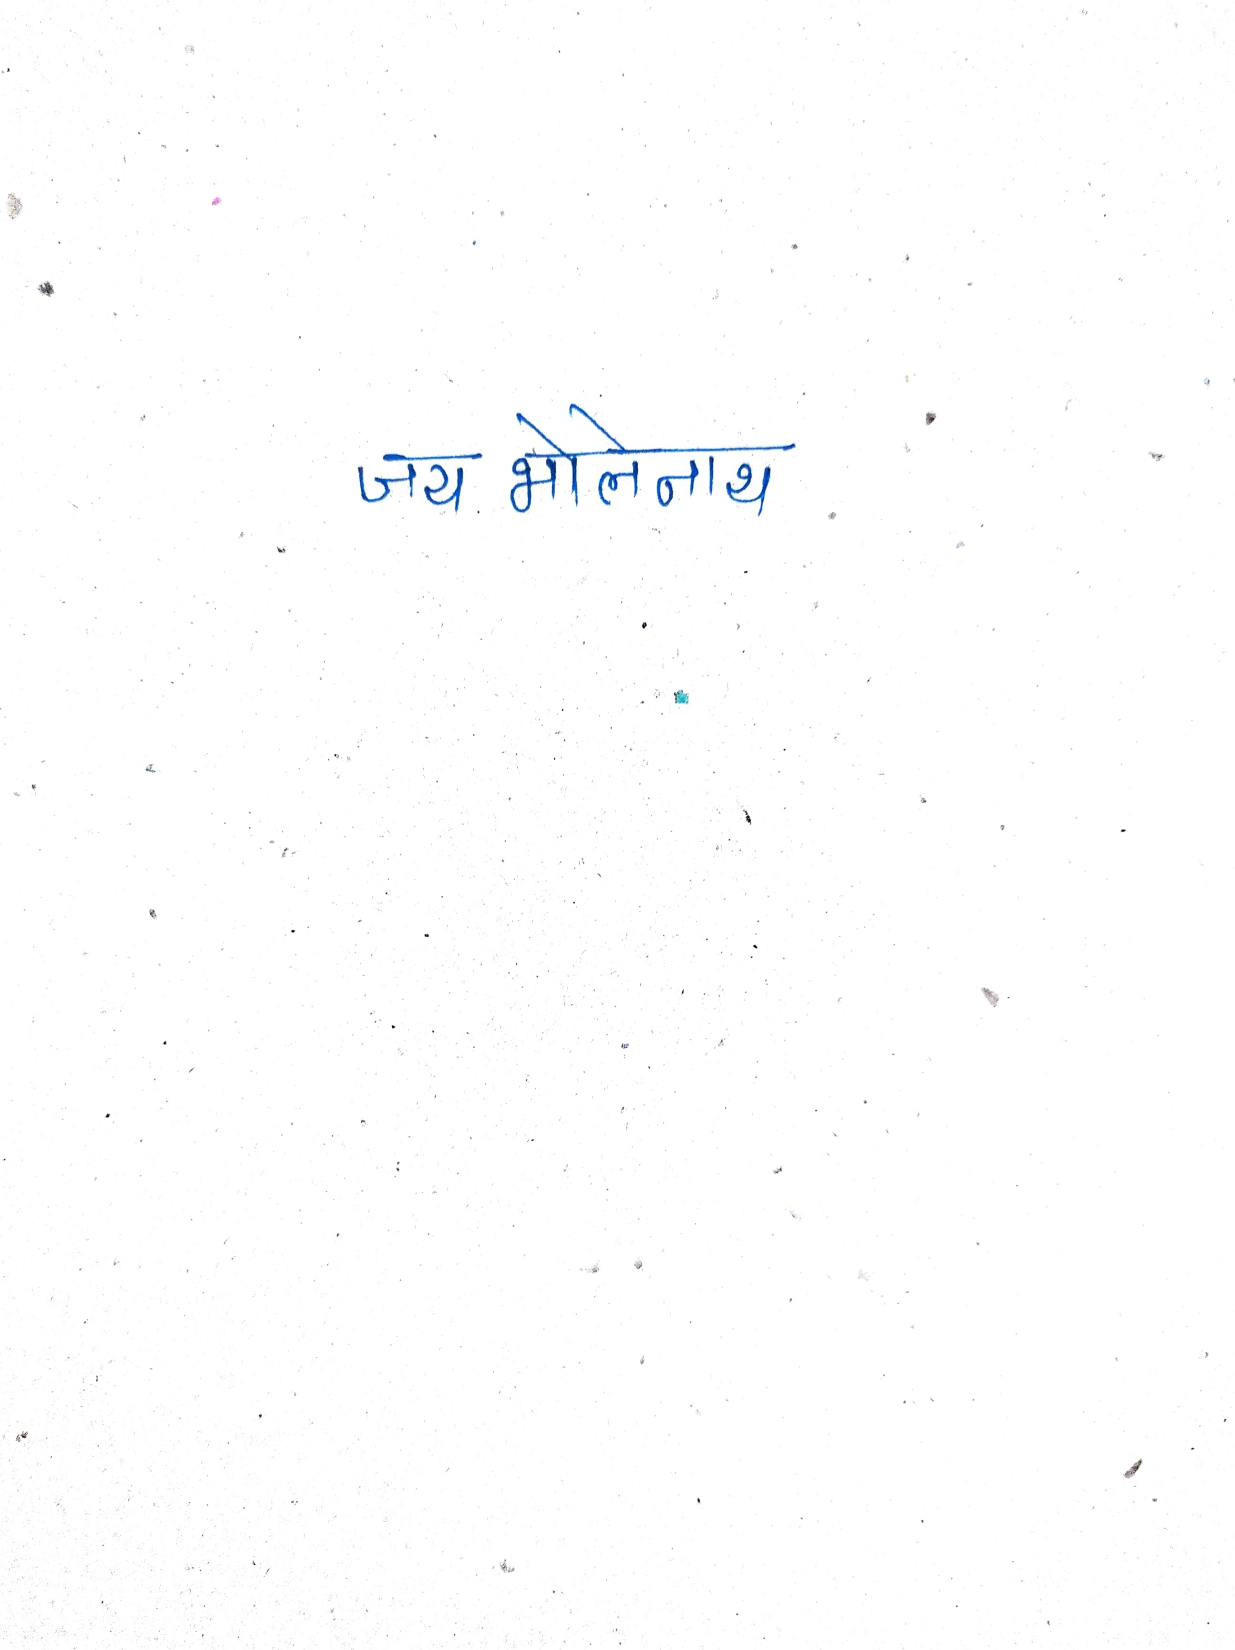 जय भोलेनाथ